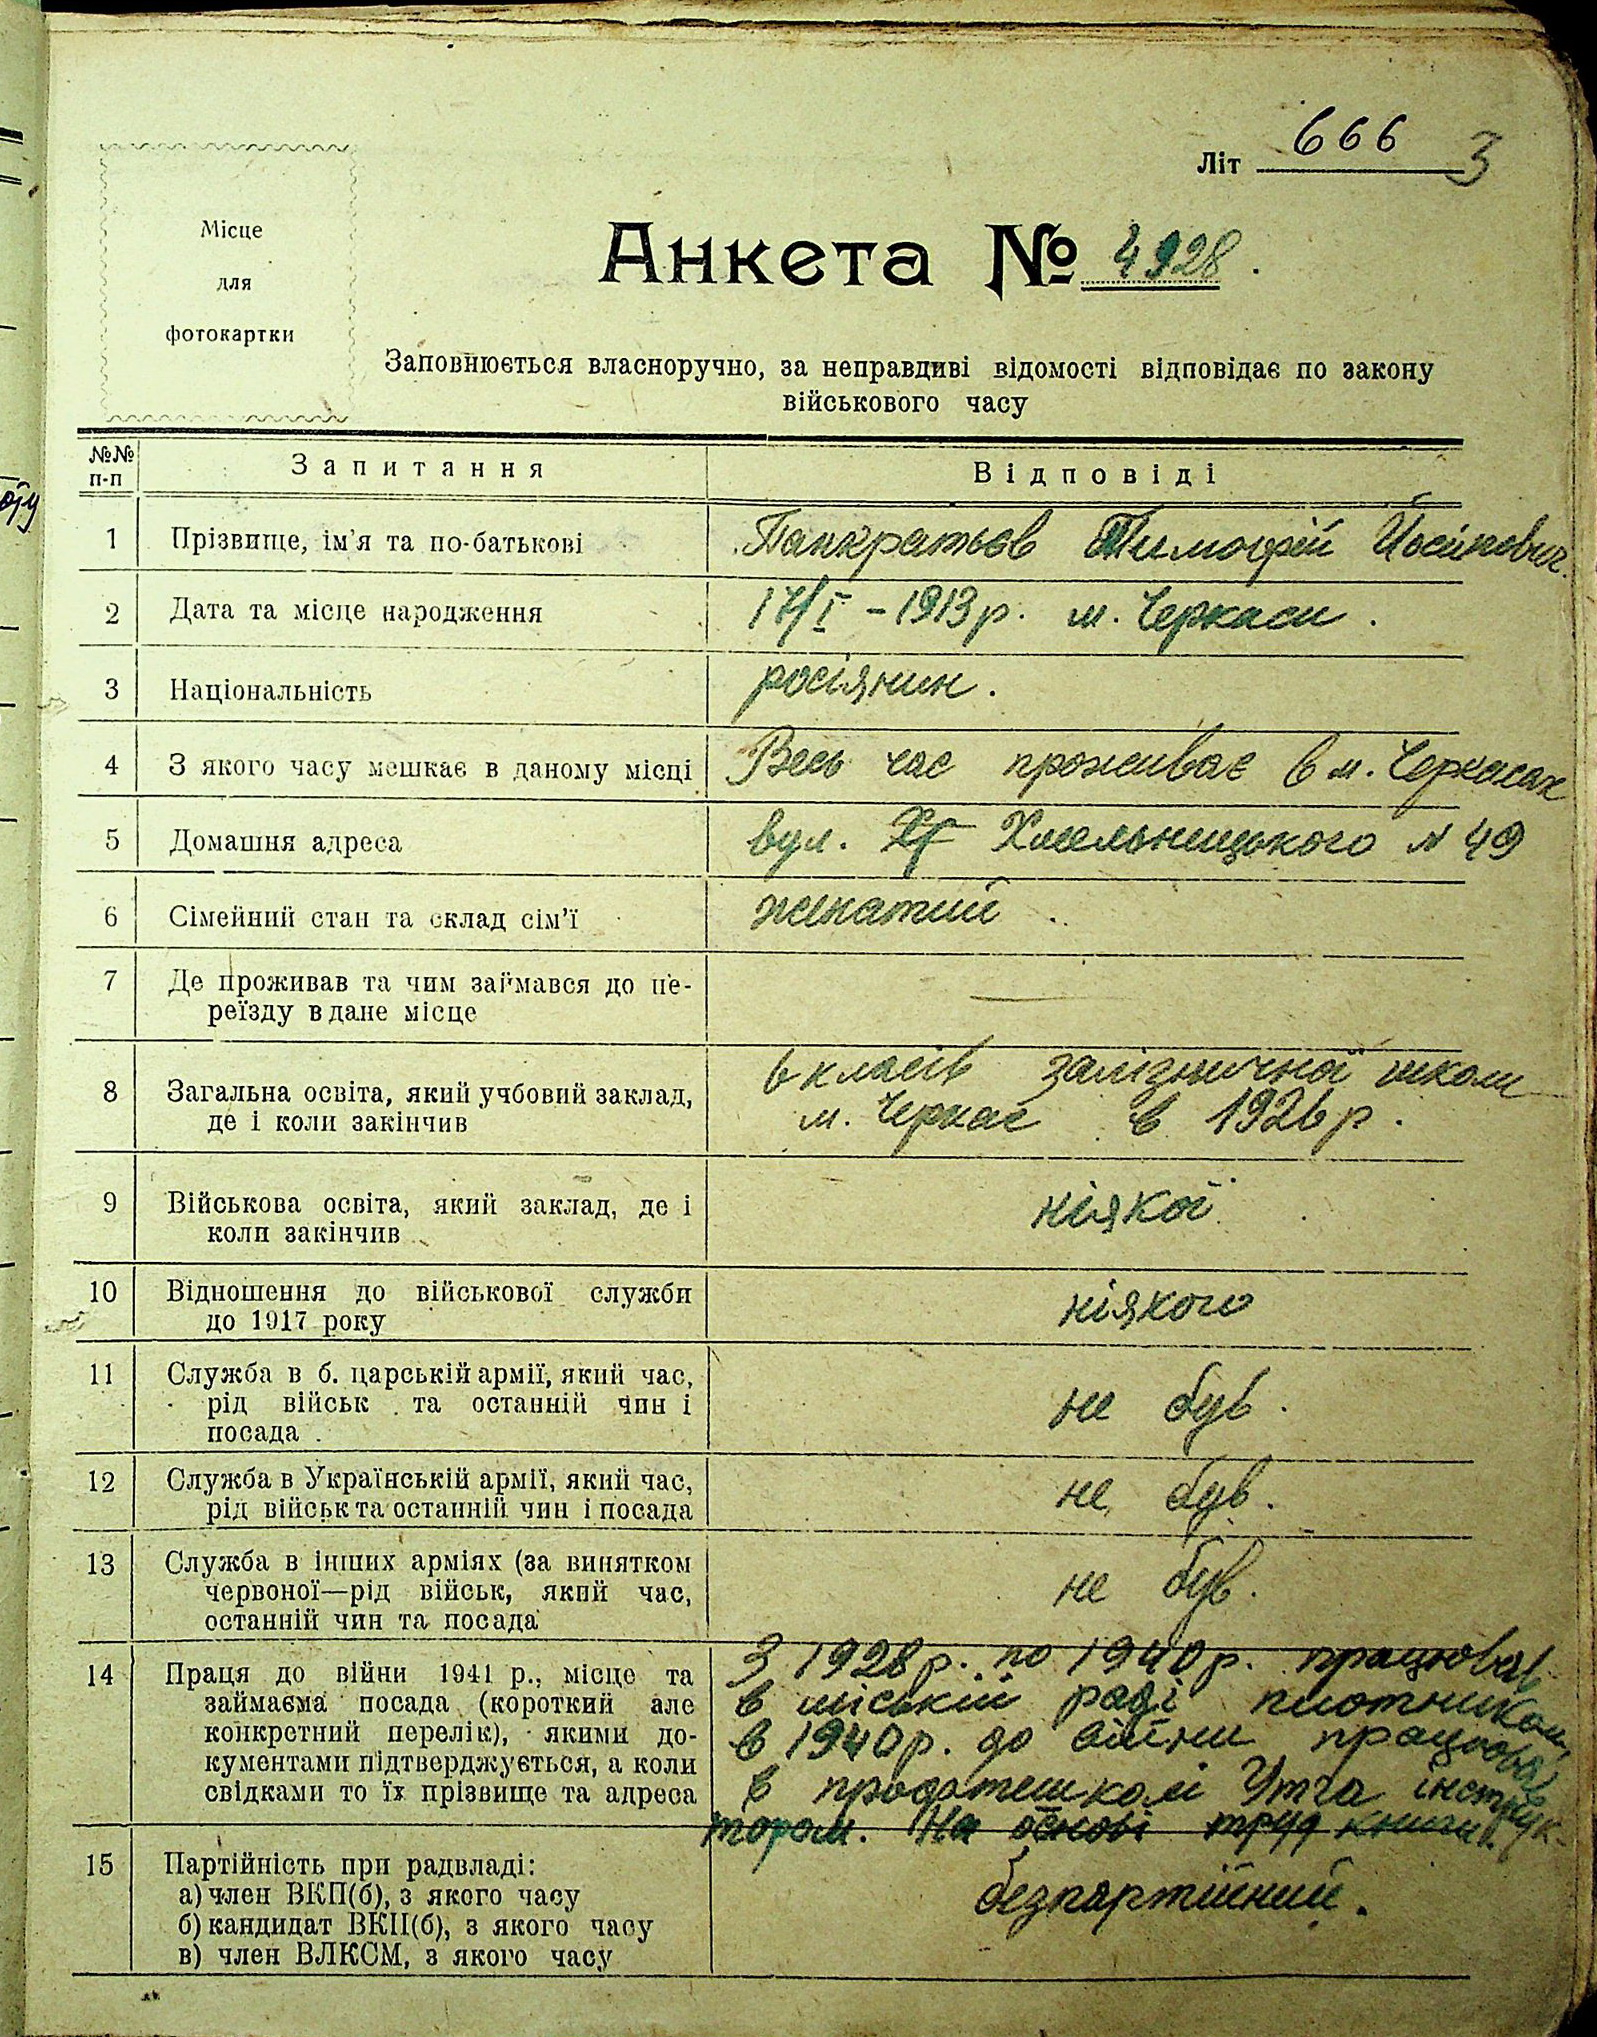 Літ 666 3
Місце
для
фотокартки
Анкета № 4928.
Заповнюється власноручно, за неправдиві відомості відповідає по закону
військового часу
№№
п-п
Запитання
Відповіді
1 Прізвище, ім'я та по-батькові Панкратьєв Тимофій Йосипович.
2 Дата та місце народження 17/I – 1913 р. м. Черкаси.
3 Національність росіянин.
4 З якого часу мешкає в даному місці Весь час проживає в м. Черкасах
5 Домашня адреса вул. Хмельницького № 49
6 Сімейний стан та склад сім'ї женатий.
7 Де проживав та чим займався до пе-
реїзду в дане місце —
8 Загальна освіта, який учбовий заклад,
де і коли закінчив
6 класів залізничної школи
м. Черкас в 1926 р.
9 Військова освіта, який заклад, де і
коли закінчив
ніякої
10 Відношення до військової служби
до 1917 року
ніякого
11 Служба в б. царській армії, який час,
рід військ та останній чин і
посада
не був.
12 Служба в Українській армії, який час,
рід військ та останній чин і посада
не був.
13 Служба в інших арміях (за винятком
червоної—рід військ, який час,
останній чин та посада
не був.
14 Праця до війни 1941 р., місце та
займаєма посада (короткий але
конкретний перелік), якими до-
кументами підтверджується, а коли
свідками то їх прізвище та адреса
З 1928 р. по 1940 р. працював
в міській раді плотником,
в 1940 р. до війни працював
в інструк-
тором. На основі труд книги.
15 Партійність при радвладі:
а) член ВКП(б), з якого часу
б) кандидат ВКП(б), з якого часу
в) член ВЛКСМ, з якого часу
безпартійний.